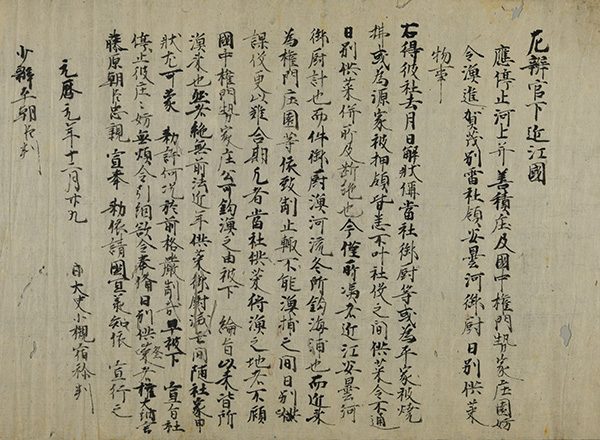 左辨官下近江國
應停止河上并善積庄及國中權門勢家庄園妨
令漁進賀茂別雷社領安曇河御厨日別供菜
物事
右得彼社去月日解狀偁當社御厨等或為平家被燒
拂或為源家被押領皆悉不叶社役之間供菜令不通
日別供菜併所及斷絶也今僅所憑者近江安曇河
御厨計也而件御厨漁河流冬所釣海浦也而近来
為權門庄園等依致制止輙不能漁捕之間日別供
課役更以難合期者當社供菜漁之地者不顧
國中權門勢家庄公可釣漁之由被下 綸旨以来皆所
漁来也然者絶無前法近年供菜御厨減亡間社家申
狀尤可蒙 勅許何况於前格嚴制哉早被下 宣旨社
停止彼庄々妨無煩令引網欲令奉備日別供菜者權大納言
藤原朝臣忠親宣奉 勅依請國宜承知依宣行之
元暦元年十一月廿九
大史小槻宿祢判
少辨平朝臣判